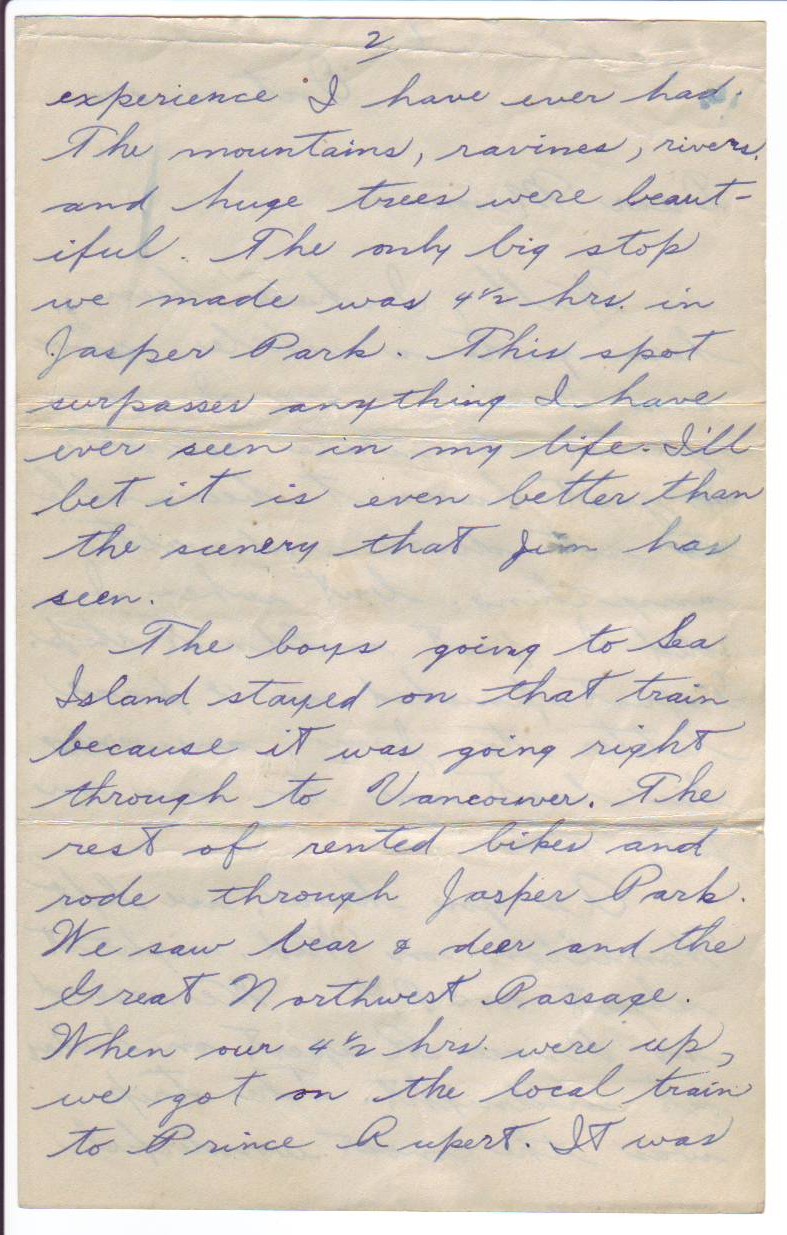 2
experience I have ever had.
The mountains, ravines, rivers,
and huge trees were beaut-
iful. The only big stop
we made was 4 1/2 hrs. in
Jasper Park. This spot
surpasses anything I have
ever seen in my life. I'll
bet it is even better than
the scenery that Jim has
seen.
The boys going to Sea
Island stayed on that train
because it was going right
through to Vancouver. The
rest of rented bikes and
rode through Jasper Park.
We saw bear & deer and the
Great Northwest Passage.
When our 4 1/2 hrs. were up,
we got on the local train
to Prince Rupert. It was